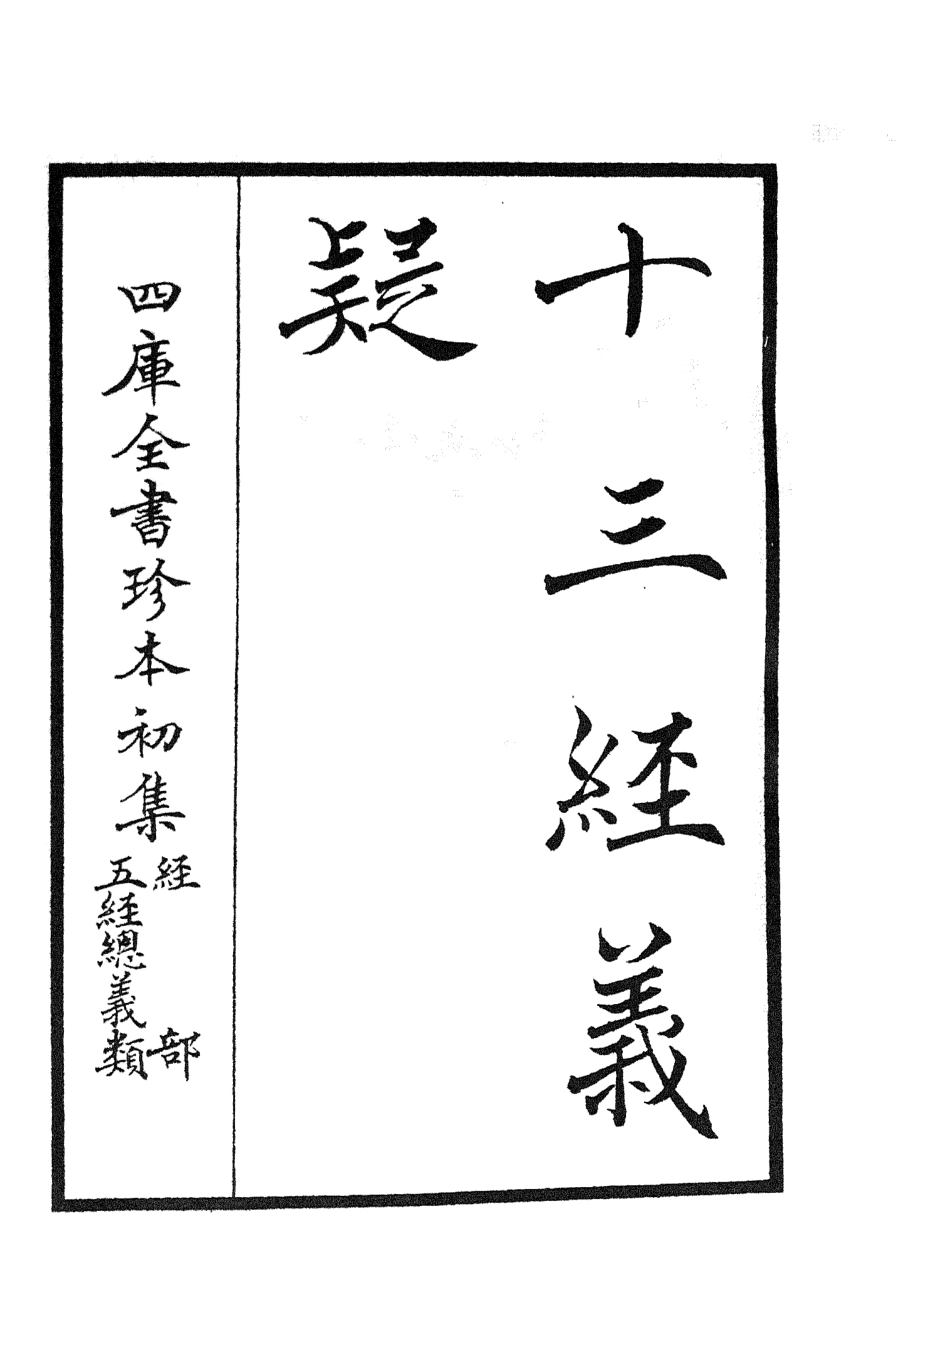 十三經義
疑
四庫全書珍本初集
經部
五經總義類